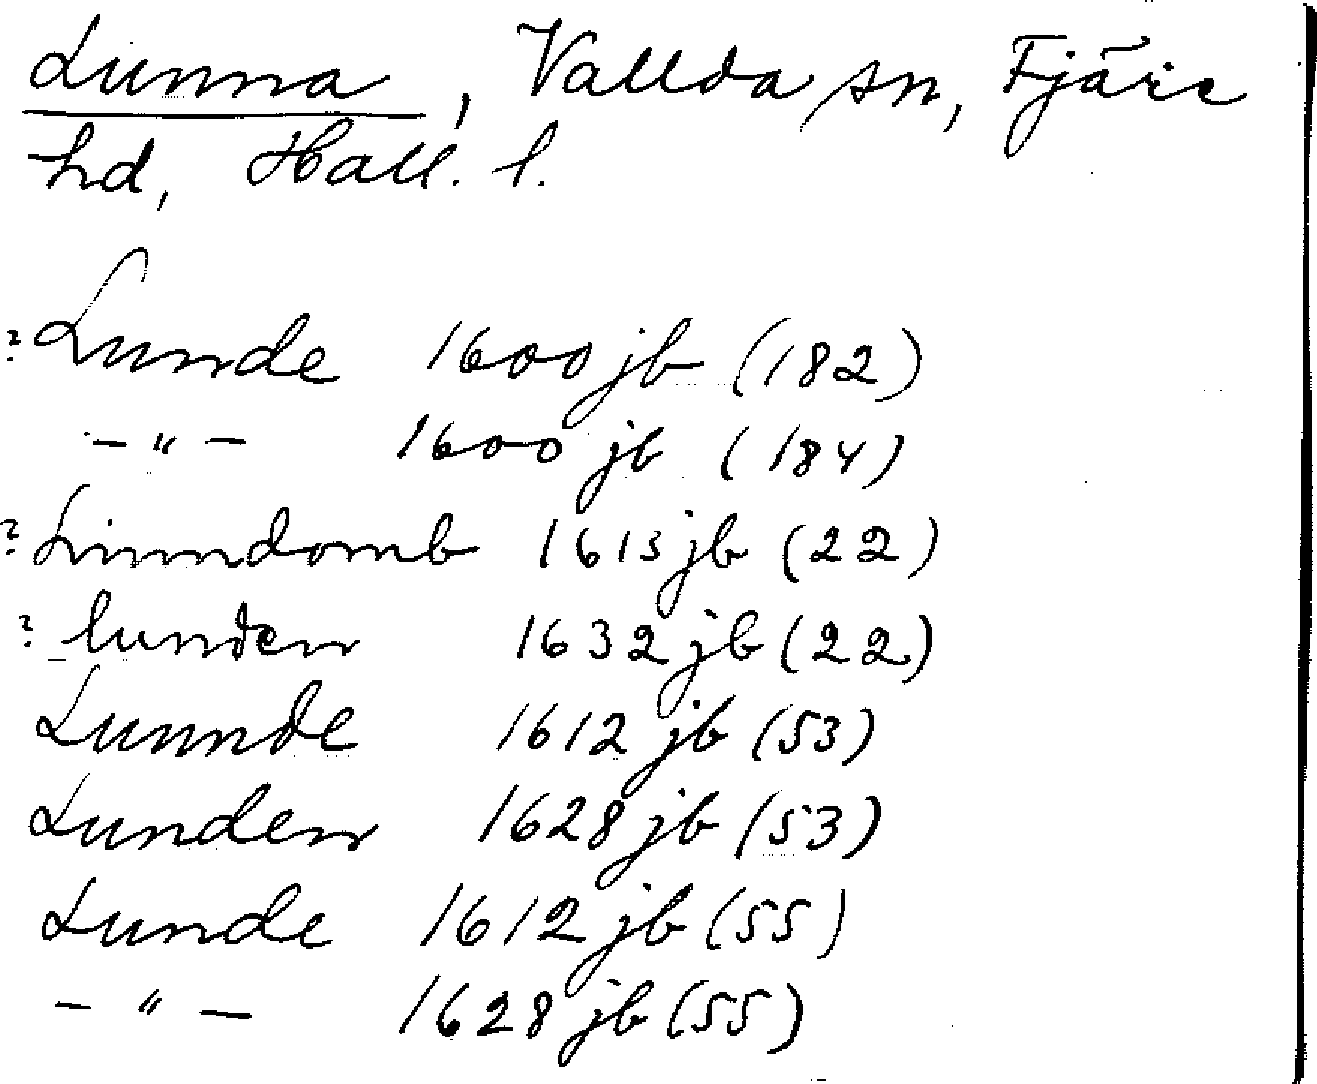 Lunna, Vallda sn, Fjäre
hd, Hall. l.
? Lunde 1600 jb (182)
– " – 1600 jb (184)
? Linndomb 1615 jb (22)
? lunden 1632 jb (22)
Lunnde 1612 jb (53)
Lunden 1628 jb (53)
Lunde 1612 jb (55)
– " – 1628 jb (55)